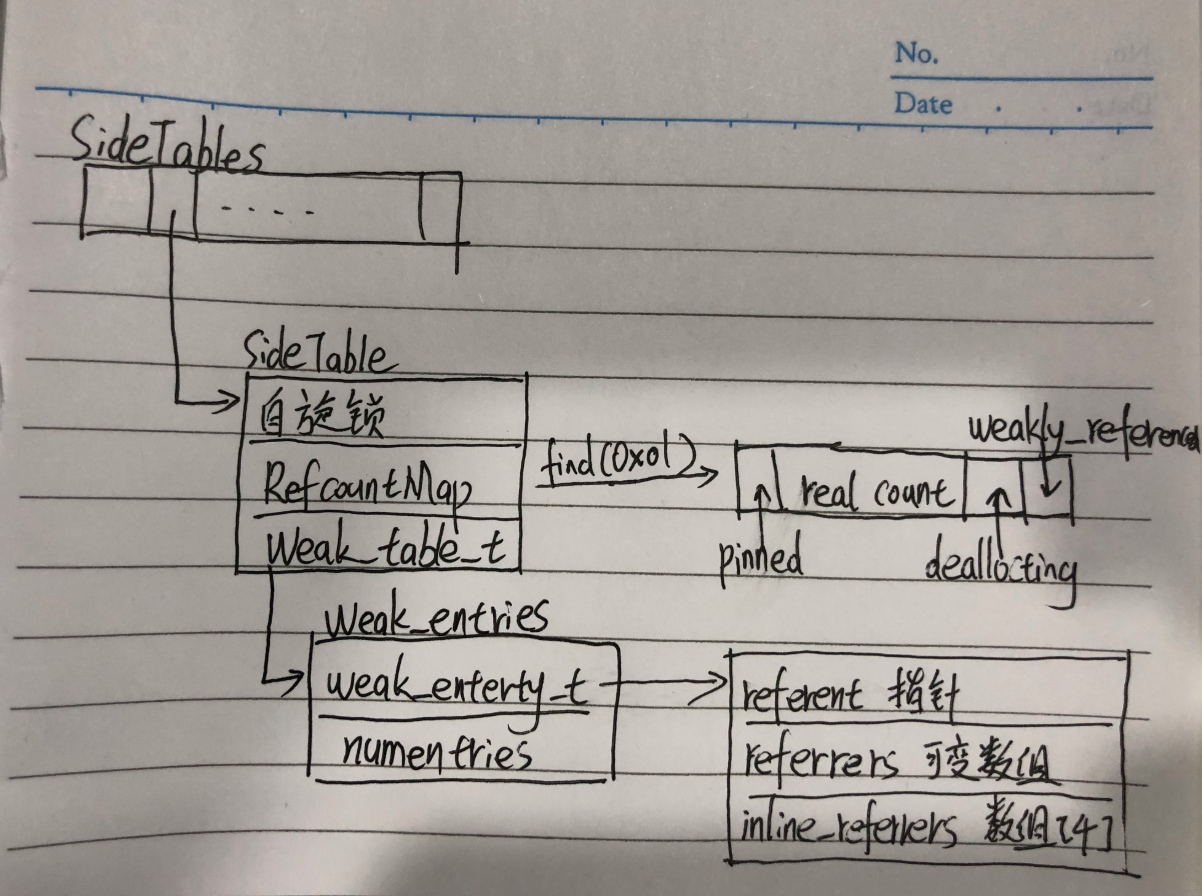 No.
Date . .
SideTables
....
SideTable
自旋锁
RefcountMap
Weak_table_t
find(0x01)
weakly_referenced
real count
pinned
deallocting
Weak_entries
weak_enterty_t
numentries
referent 指针
referrers 可变数组
inline_referrers 数组[4]